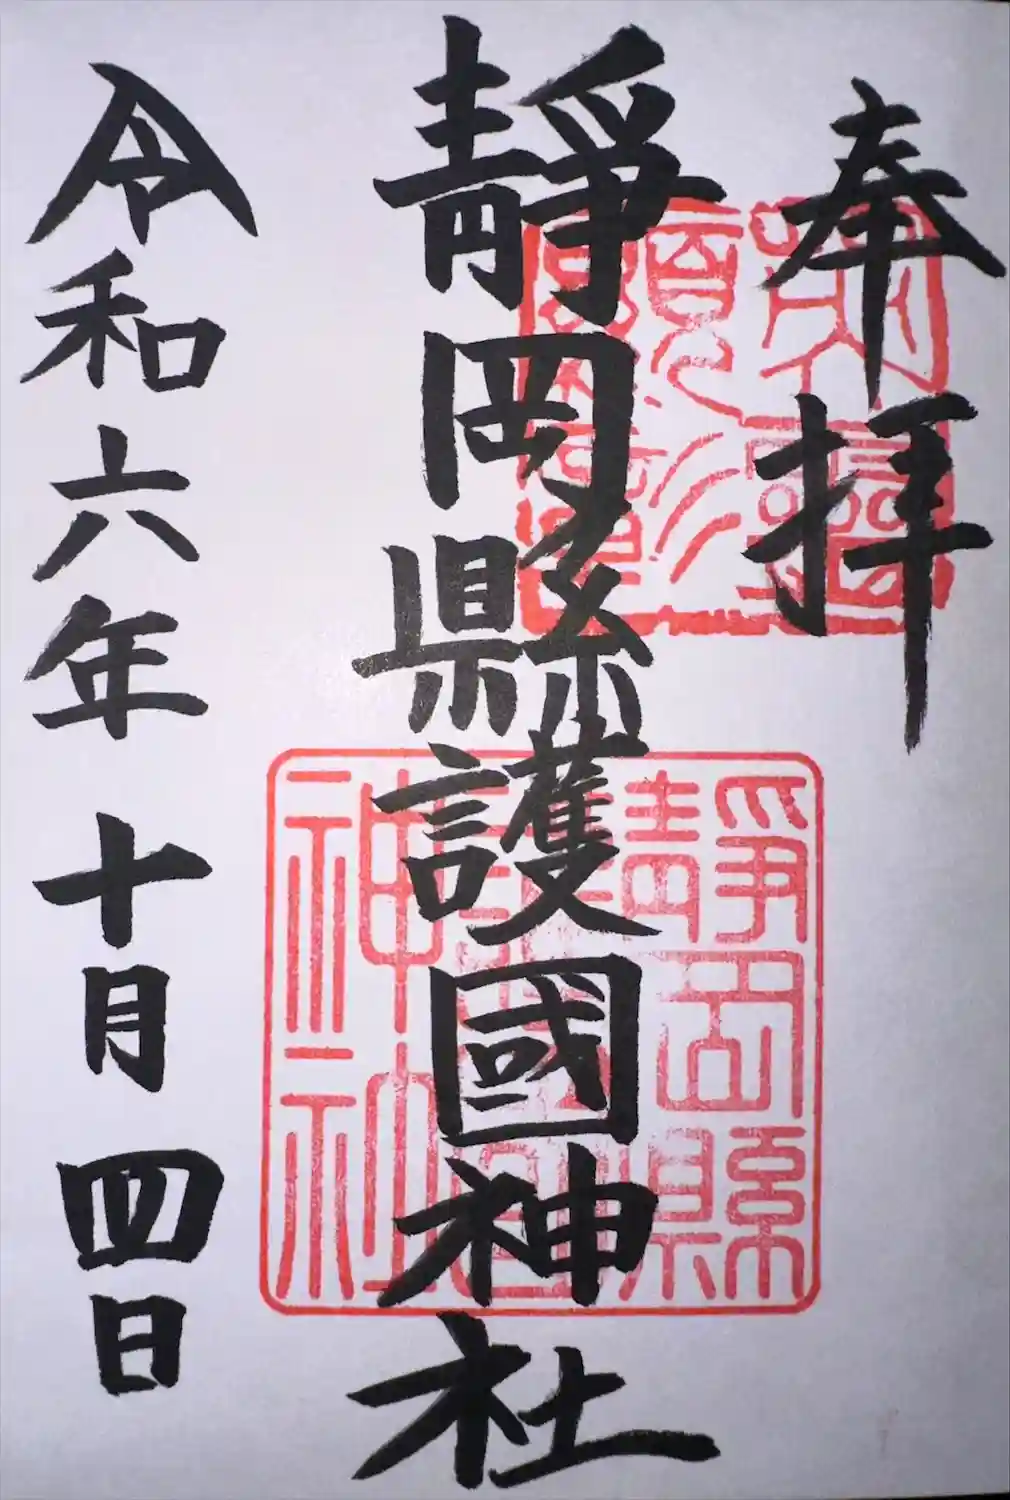 奉拝
靜岡縣護國神社
令和六年十月四日
靜岡縣護國神社